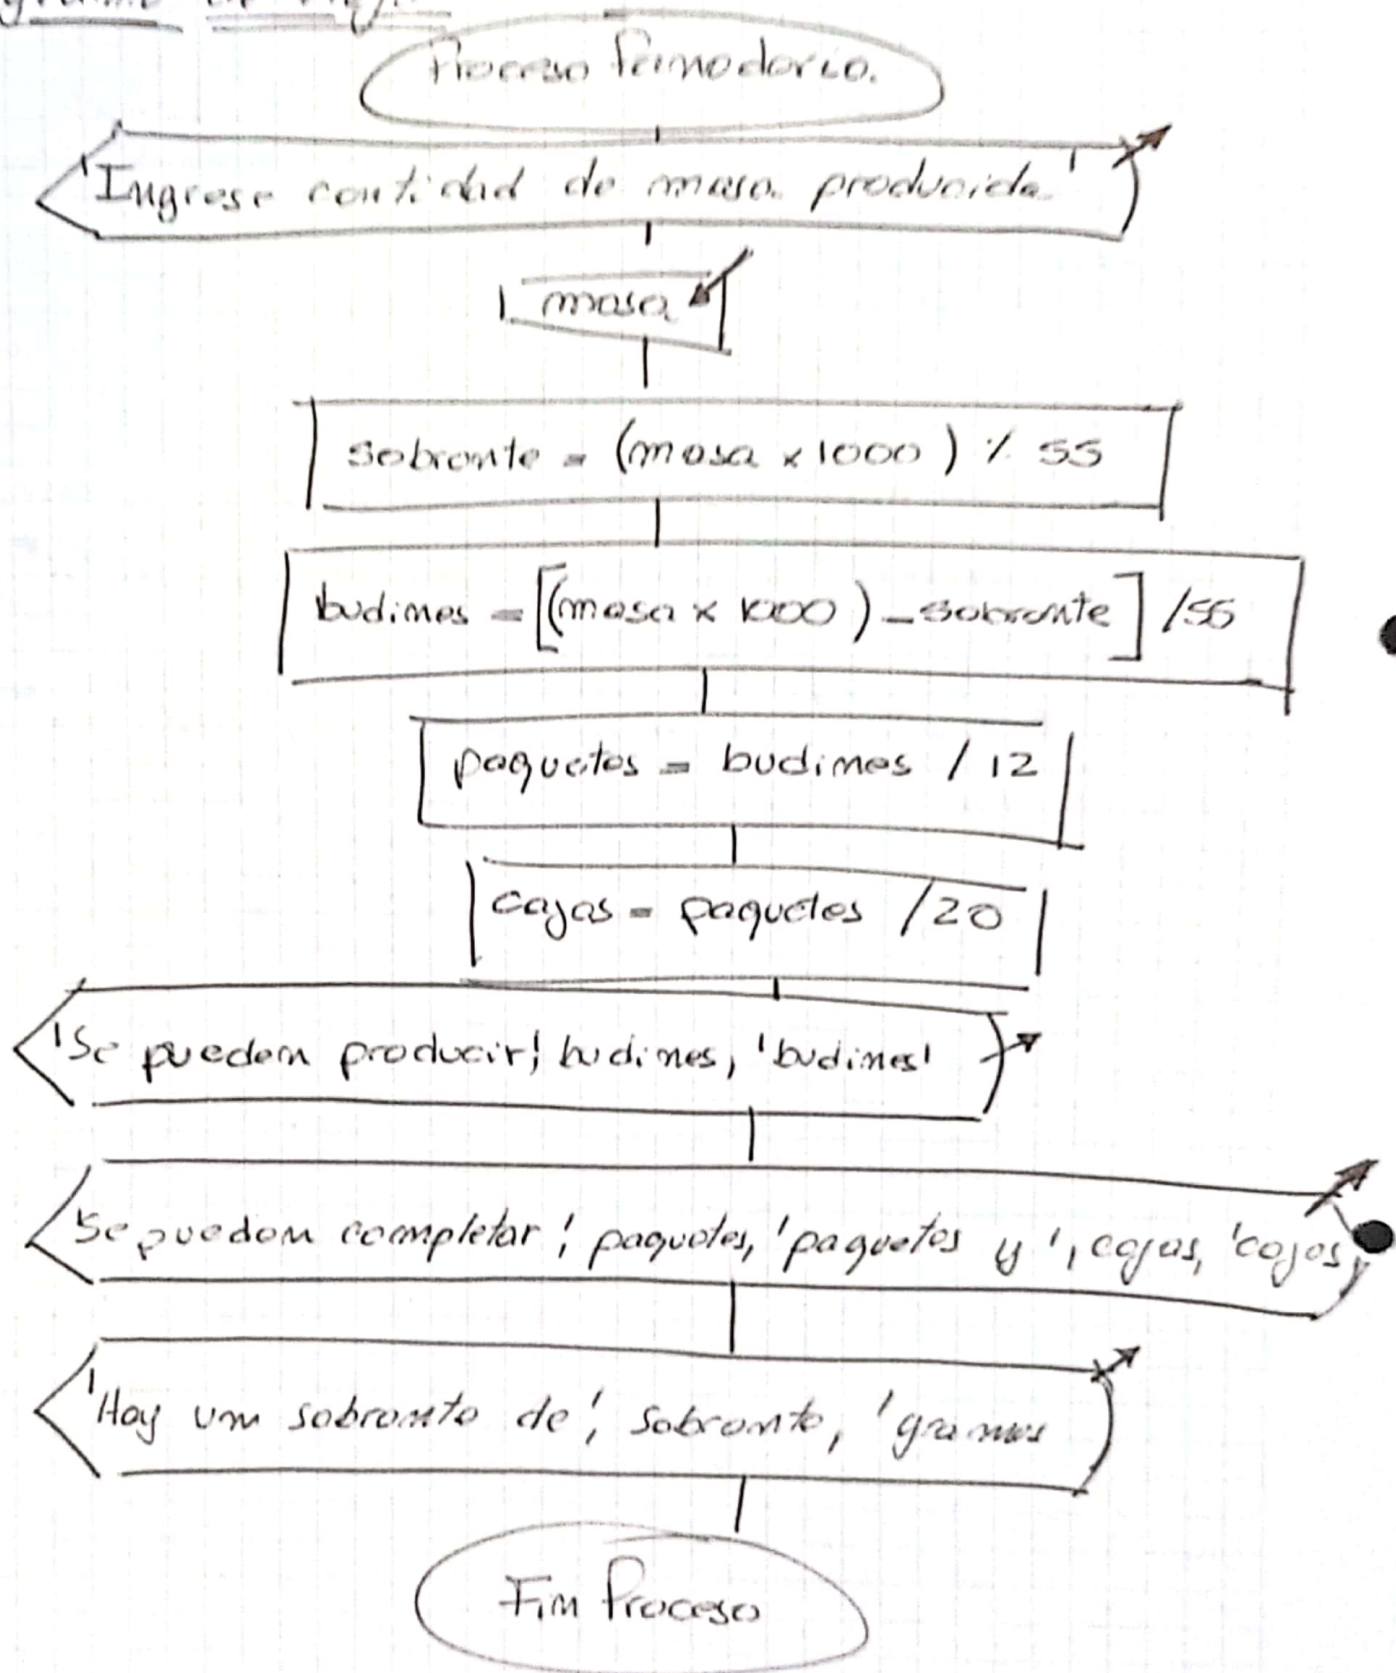 Proceso Panadería.
'Ingrese cantidad de masa producida'
masa
sobrante = (masa x 1000) % 55
budines = [(masa x 1000) - sobrante] /55
paquetes = budines / 12
cajas = paquetes /20
'Se pueden producir', budines, 'budines'
'Se pueden completar', paquetes, 'paquetes y', cajas, 'cajas
'Hay un sobrante de', sobrante, 'gramos
Fin Proceso